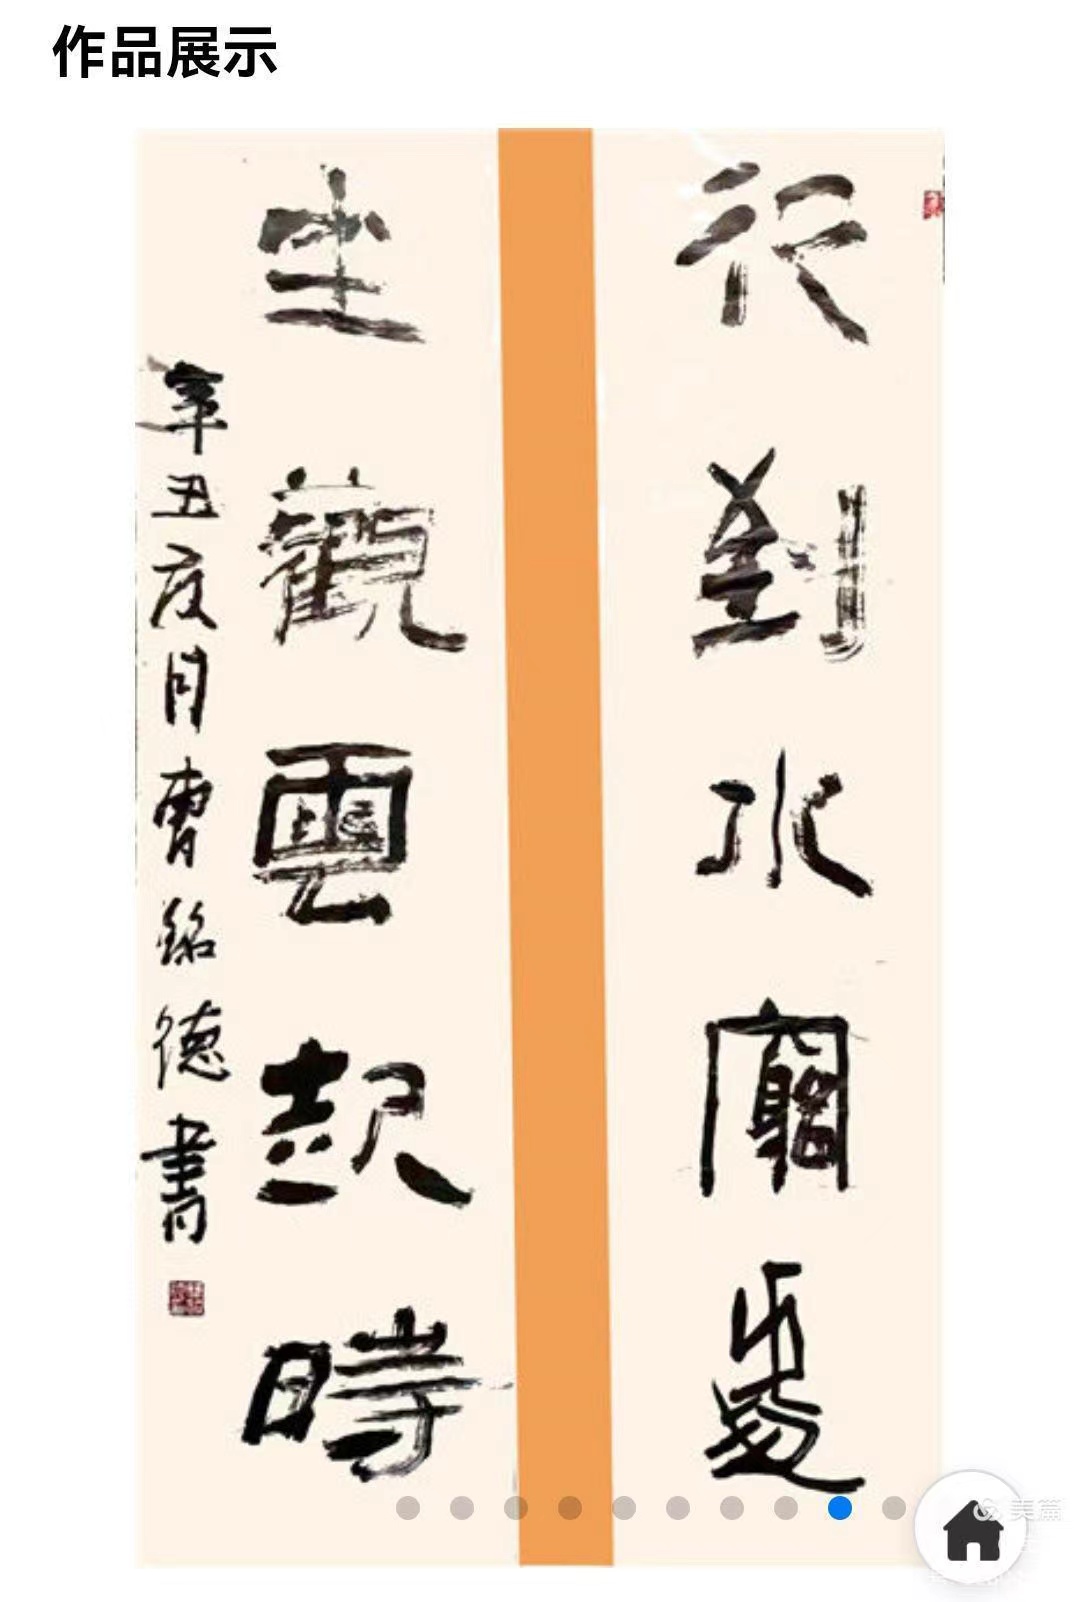 作品展示
行到水窮處
坐觀雲起時
辛丑夏月曹銘德書
美篇